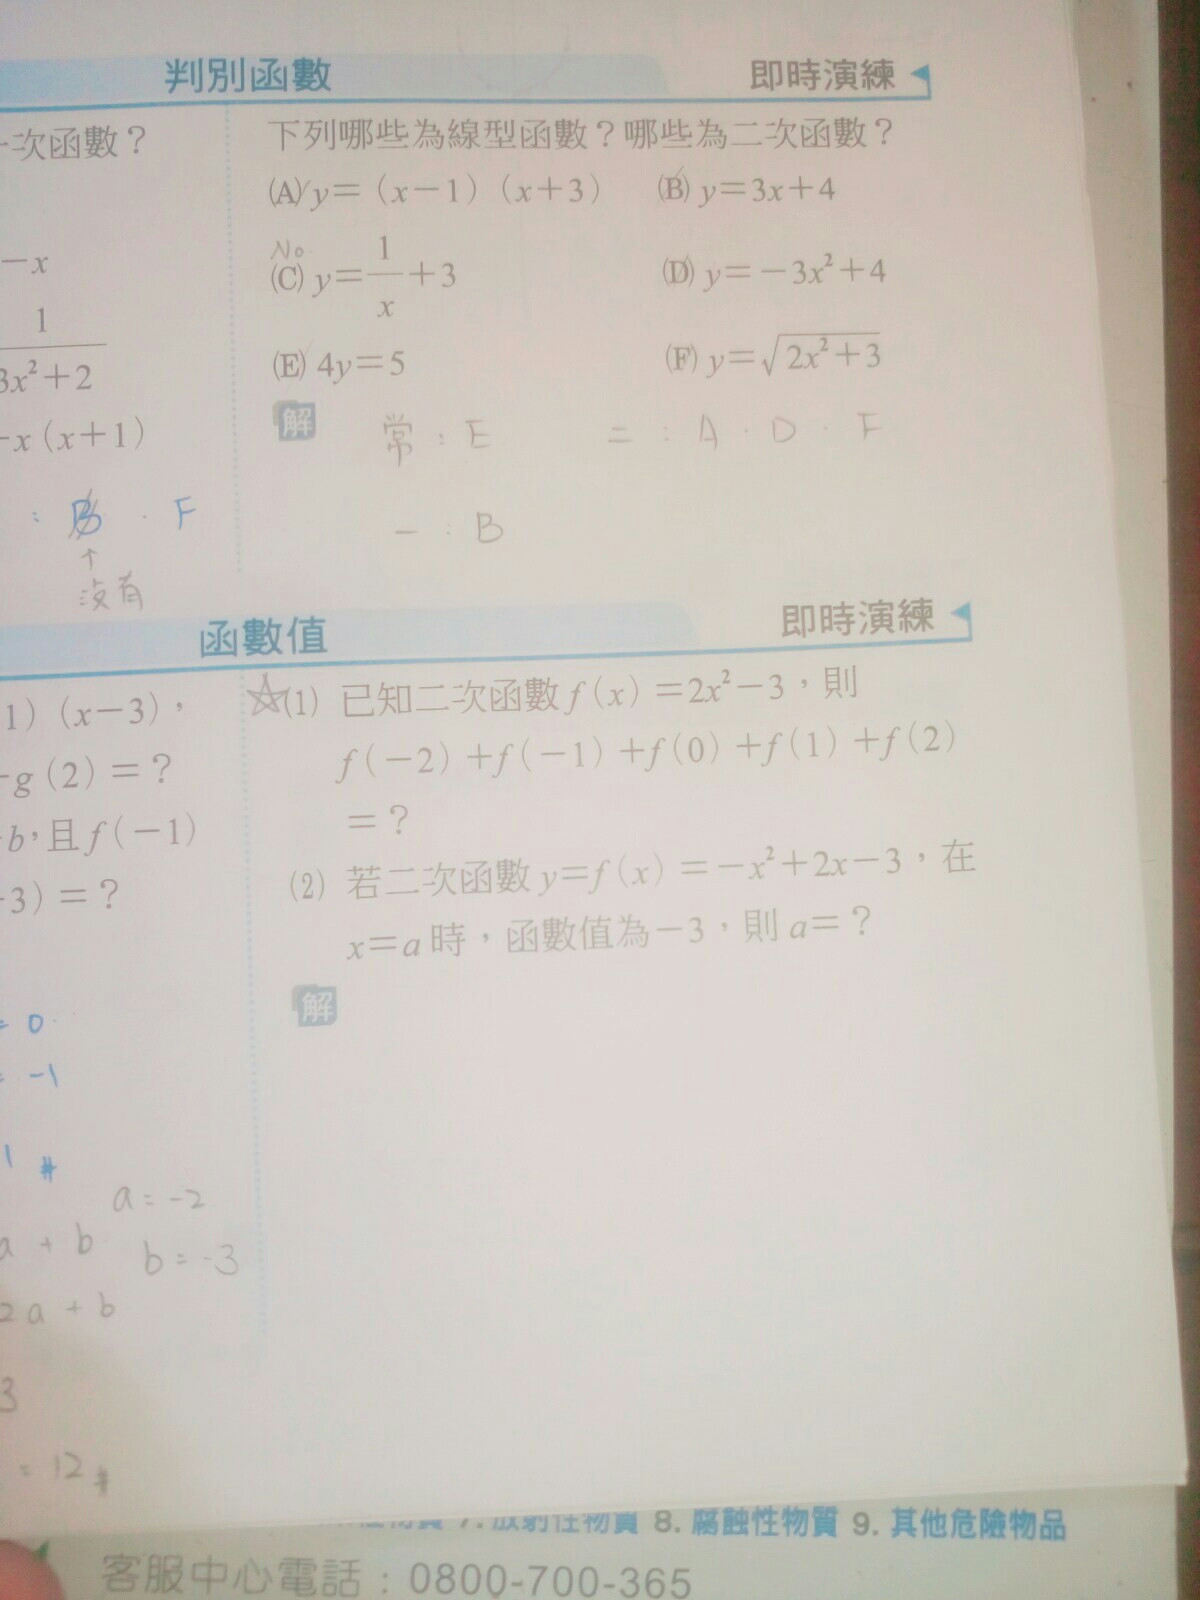 判別函數
即時演練
一次函數？
－x
1
3x²+2
－x（x+1）
： B ． F
↑
沒有
下列哪些為線型函數？哪些為二次函數？
(A) y＝（x－1）（x＋3）
(B) y＝3x＋4
No
(C) y＝1/x＋3
(D) y＝－3x²＋4
(E) 4y＝5
(F) y＝√2x²＋3
解
常：E
二：A．D．F
一：B
函數值
即時演練
1）（x－3），
g（2）＝？
b，且 f（－1）
3）＝？
= 0
= -1
1 #
a = -2
a + b
b = -3
2a + b
3
= 12 #
☆(1) 已知二次函數 f（x）＝2x²－3，則
f（－2）＋f（－1）＋f（0）＋f（1）＋f（2）
＝？
(2) 若二次函數 y＝f（x）＝－x²＋2x－3，在
x＝a 時，函數值為－3，則 a＝？
解
物質 7. 放射性物質 8. 腐蝕性物質 9. 其他危險物品
客服中心電話：0800-700-365